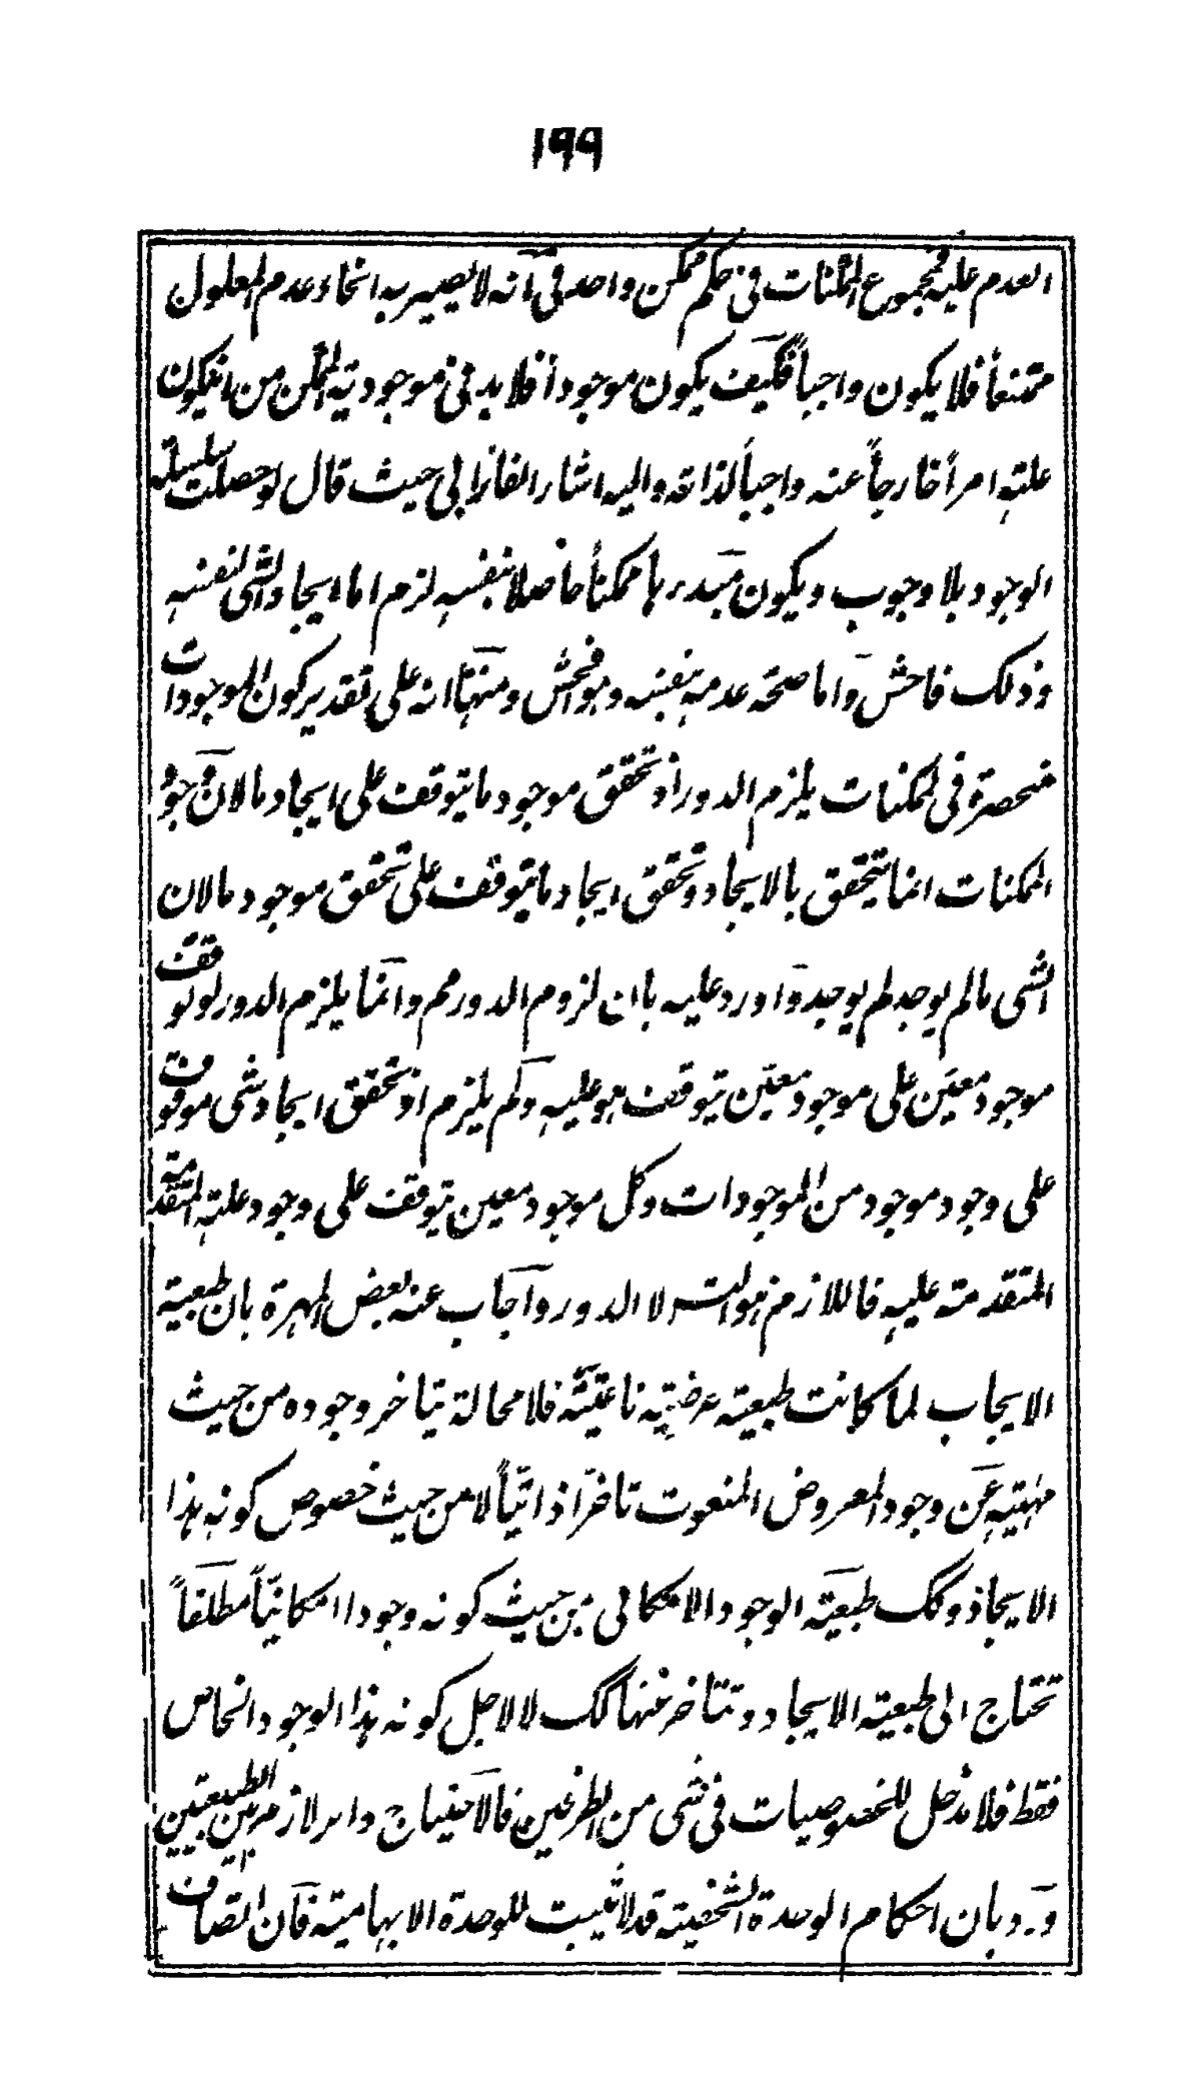 ١٩٩
العدم عليه فمجموع الممكنات فى حكم ممكن واحد فى انه لا يصير به انحاء عدم المعلول
ممتنعاً فلا يكون واجباً فكيف يكون موجوداً فلا بد فى موجودية الممكن من ان يكون
علته امراً خارجاً عنه واجباً لذاته واليه اشار الفارابى حيث قال لو حصلت سلسلة
الوجود بلا وجوب ويكون مبدءها ممكناً حاصلا بنفسه لزم اما ايجاد الشى لنفسه
وذلك فاحش واما صحة عدمه بنفسه وهو افحش ومنها انه على تقدير كون الموجودات
منحصرة فى الممكنات يلزم الدور اذ تحقق موجود ما يتوقف على ايجاد ما لان وجود
الممكنات انما يتحقق بالايجاد وتحقق ايجاد ما يتوقف على تحقق موجود ما لان
الشى ما لم يوجد لم يوجد واورد عليه بان لزوم الدور مم وانما يلزم الدور لو توقف
موجود معين على موجود معين يتوقف هو عليه ولم يلزم اذ تحقق ايجاد شى موقوف
على وجود موجود من الموجودات وكل موجود معين يتوقف على وجود علته المتقدمة
المتقدمة عليه فاللازم هو التس لا الدور واجاب عنه بعض المهرة بان طبعية
الايجاب لما كانت طبعية عرضية ناعتية فلا محالة يتاخر وجوده من حيث
مهيته عن وجود المعروض المنعوت تاخراً ذاتياً لا من حيث خصوص كونه هذا
الايجاد وكك طبعية الوجود الامكانى من حيث كونه وجودا امكانياً مطلقاً
تحتاج الى طبعية الايجاد وتتاخر عنها كك لا لاجل كونه هذا الوجود الخاص
فقط فلا مدخل للخصوصيات فى شى من الطرفين فالاحتياج دائر لازم بين الطبيعتين
ورد بان احكام الوحدة الشخصية قد لا تثبت للوحدة الابهامية فان اتصاف